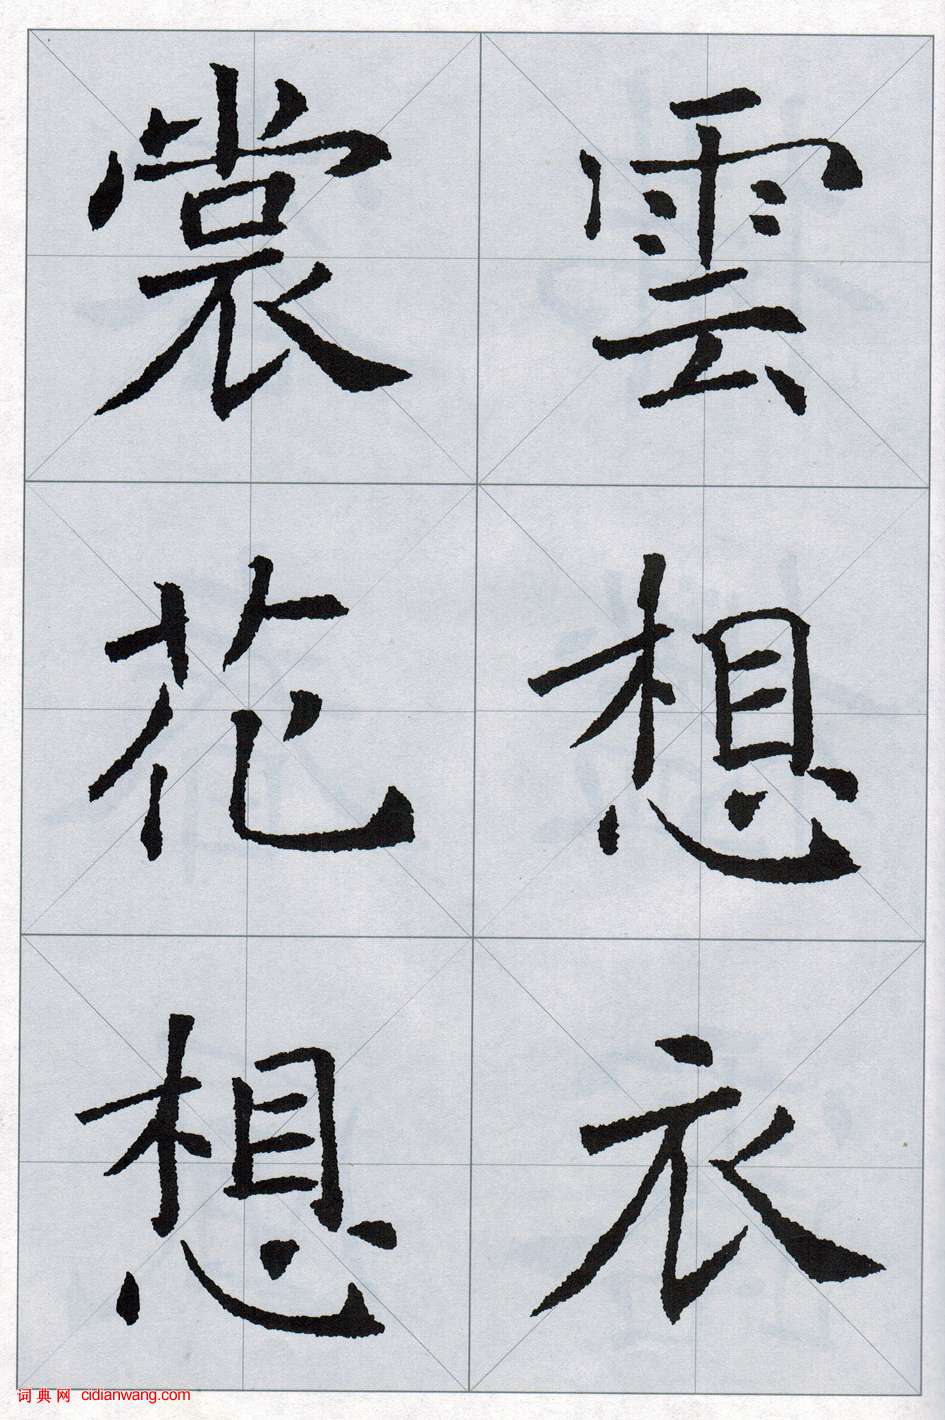 雲想衣
裳花想
词典网 cidianwang.com